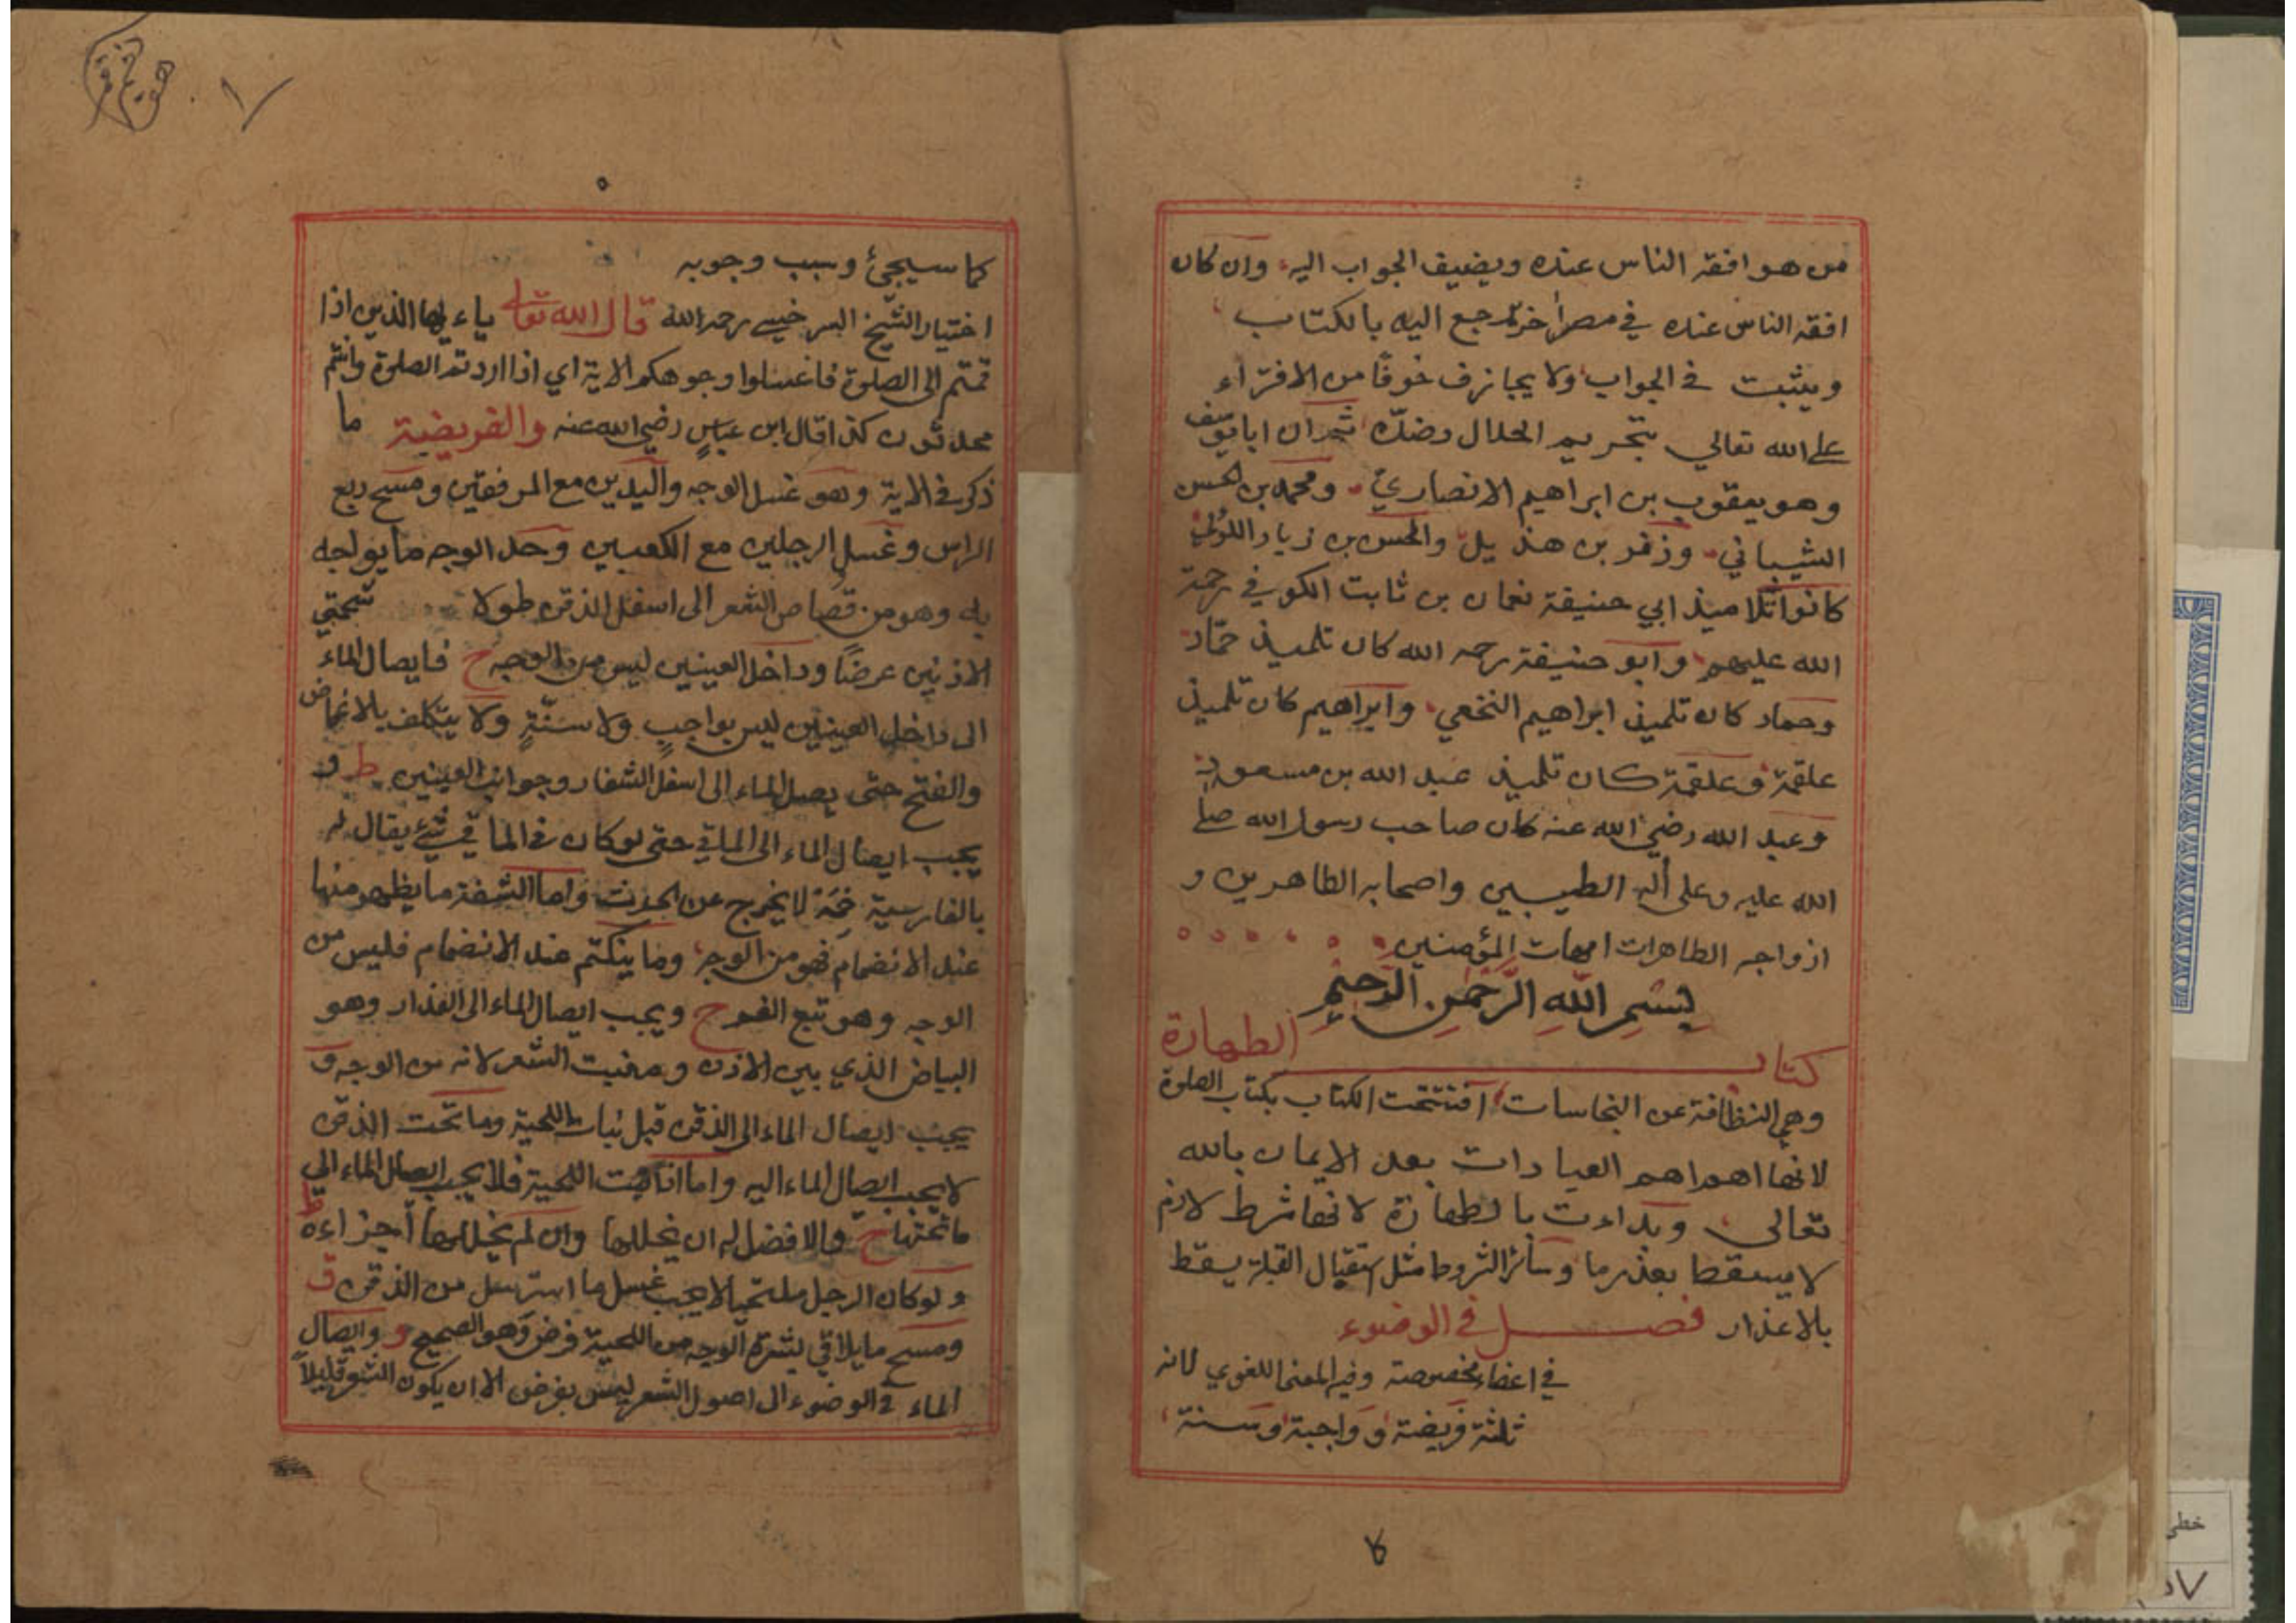 من هو افقه الناس عنده ويضيف الجواب اليه وان كان
افقه الناس عنده في مصر اخر يرجع اليه بالكتاب
ويثبت في الجواب ولا يجازف خوفًا من الافترآء
على الله تعالي بتحريم الحلال وضدّه ثم ان ابا يوسف
وهو يعقوب بن ابراهيم الانصاريّ ومحمد بن الحسن
الشيباني وزفر بن هذيل والحسن بن زياد اللؤلي
كانوا تلاميذ ابي حنيفة نعمان بن ثابت الكوفي رحمة
الله عليهم وابو حنيفة رحمه الله كان تلميذ حمّاد
وحماد كان تلميذ ابراهيم النخعي وابراهيم كان تلميذ
علقمة وعلقمة كان تلميذ عبد الله بن مسعود
وعبد الله رضي الله عنه كان صاحب رسول الله صلى
الله عليه وعلى أله الطيبين واصحابه الطاهرين و
ازواجه الطاهرات امهات المؤمنين
بِسْمِ اللَّهِ الرَّحْمٰنِ الرَّحِيْمِ
كتاب الطهارة
وهي النظافة عن النجاسات افتتحت الكتاب بكتاب الصلوة
لانها اهم اهم العبادات بعد الايمان بالله
تعالى وبداءت بالطهارة لانها شرط لازم
لا يسقط بعذر ما وسائر الشروط مثل استقبال القبلة يسقط
بالاعذار فصل في الوضوء
في اعضاء مخصوصة وفيه المعنى اللغوي لانه
ثلثة فريضة و واجبة وسنة
كما سيجيئ وسبب وجوبه
اختيار الشيخ السرخسي رحمه الله قال الله تعالى ياءيها الذين اذا
قمتم الى الصلوة فاغسلوا وجوهكم الاية اي اذا اردتم الصلوة وانتم
محدثون كذا قال ابن عباسٍ رضي الله عنه والفريضة ما
ذكر في الاية وهو غسل الوجه واليدين مع المرفقين ومسح ربع
الراس وغسل الرجلين مع الكعبين وحد الوجه ما يواجه
به وهو من قصاص الشعر الى اسفل الذقن طولا شحمتي
الاذنين عرضًا وداخل العينين ليس من الوجه ح فايصال الماء
الى داخل العينين ليس بواجبٍ ولا سنّةٍ ولا يتكلف بالاغماض
والفتح حتى يصل الماء الى اسفل الشفار وجوانب العينين ط و
يجب ايصال الماء الى الماقي حتى لو كان في الماقي شيئ يقال له
بالفارسية لا يخرج عن الحدث واما الشفة ما يظهر منها
عند الانضمام فهو من الوجه وما ينكتم عند الانضمام فليس من
الوجه وهو تبع الفم ح ويجب ايصال الماء الى العذار وهو
البياض الذي بين الاذن ومنبت الشعر لانه من الوجه و
يجب ايصال الماء الى الذقن قبل نبات اللحية وما تحت الذقن
لا يجب ايصال الماء اليه واما اذا نبتت اللحية فلا يجب ايصال الماء الى
ما تحتها ح والافضل له ان يخللها وان لم يخللها أجزاءه ط
ولو كان الرجل ملتحيا لا يجب غسل ما استرسل من الذقن ق
ومسح ما يلاقي بشرة الوجه من اللحية فرض وهو الصحيح و وايصال
الماء في الوضوء الى اصول الشعر ليس بفرض الا ان يكون الشعر قليلاً